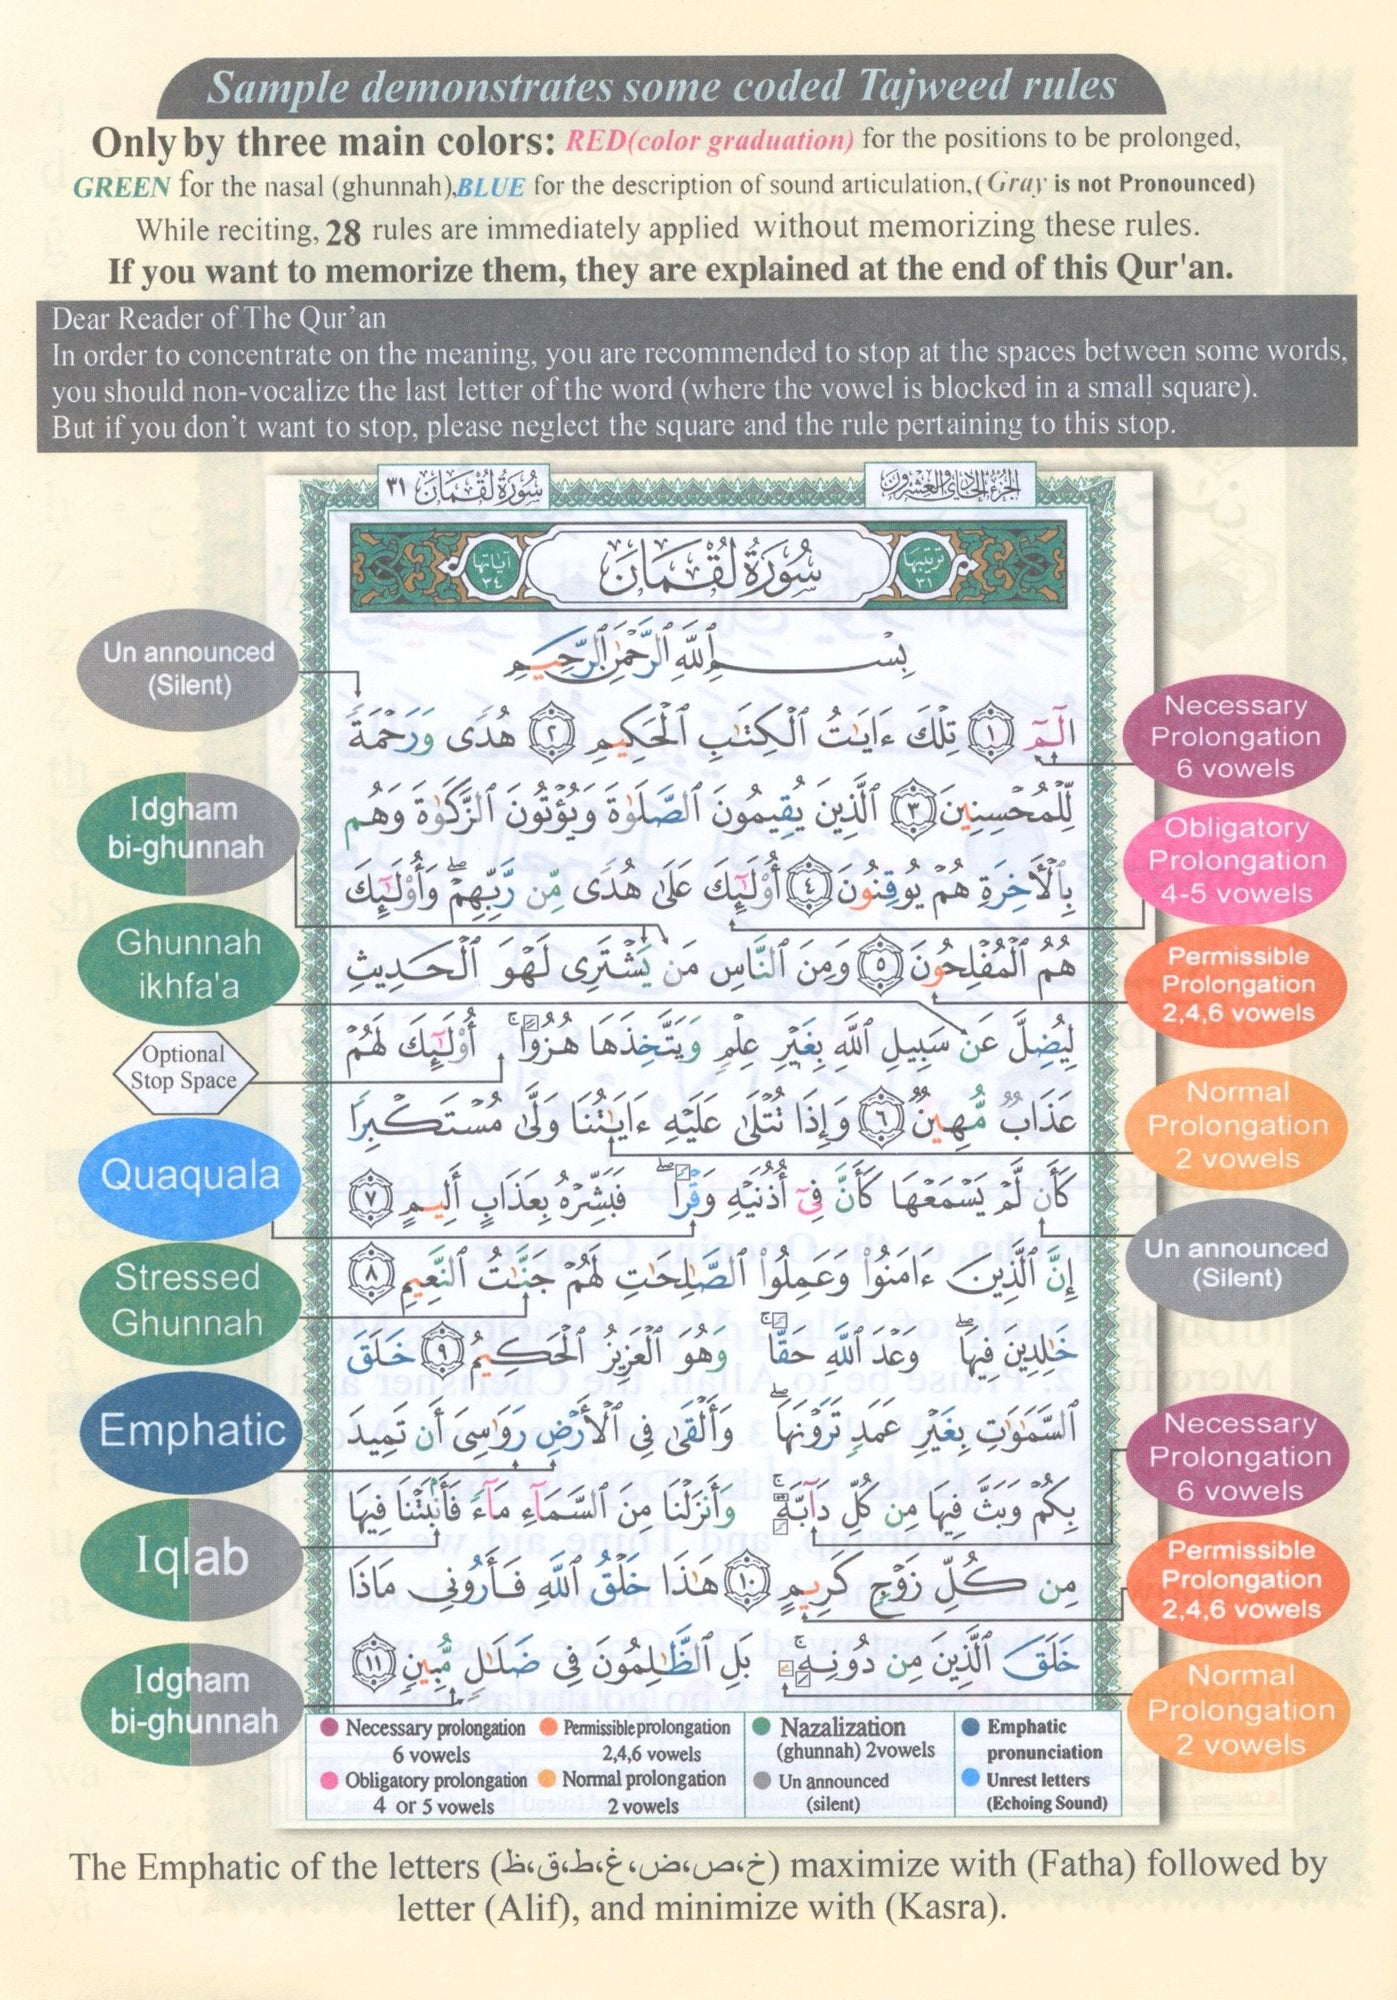 Sample demonstrates some coded Tajweed rules
Only by three main colors: RED(color graduation) for the positions to be prolonged,
GREEN for the nasal (ghunnah),BLUE for the description of sound articulation,(Gray is not Pronounced)
While reciting, 28 rules are immediately applied without memorizing these rules.
If you want to memorize them, they are explained at the end of this Qur'an.
Dear Reader of The Qur'an
In order to concentrate on the meaning, you are recommended to stop at the spaces between some words,
you should non-vocalize the last letter of the word (where the vowel is blocked in a small square).
But if you don't want to stop, please neglect the square and the rule pertaining to this stop.
الجزء الحادي والعشرون
سُورَةُ لُقْمَان ٣١
ترتيبها ٣١
سُورَةُ لُقْمَان
آياتها ٣٤
بِسْمِ ٱللَّهِ ٱلرَّحْمَٰنِ ٱلرَّحِيمِ
الٓمٓ ١ تِلْكَ ءَايَٰتُ ٱلْكِتَٰبِ ٱلْحَكِيمِ ٢ هُدًى وَرَحْمَةً
لِّلْمُحْسِنِينَ ٣ ٱلَّذِينَ يُقِيمُونَ ٱلصَّلَوٰةَ وَيُؤْتُونَ ٱلزَّكَوٰةَ وَهُم
بِٱلْأَخِرَةِ هُمْ يُوقِنُونَ ٤ أُوْلَٰٓئِكَ عَلَىٰ هُدًى مِّن رَّبِّهِمْ ۖ وَأُوْلَٰٓئِكَ
هُمُ ٱلْمُفْلِحُونَ ٥ وَمِنَ ٱلنَّاسِ مَن يَشْتَرِى لَهْوَ ٱلْحَدِيثِ
لِيُضِلَّ عَن سَبِيلِ ٱللَّهِ بِغَيْرِ عِلْمٍ وَيَتَّخِذَهَا هُزُوًا ۚ أُوْلَٰٓئِكَ لَهُمْ
عَذَابٌ مُّهِينٌ ٦ وَإِذَا تُتْلَىٰ عَلَيْهِ ءَايَٰتُنَا وَلَّىٰ مُسْتَكْبِرًا
كَأَن لَّمْ يَسْمَعْهَا كَأَنَّ فِىٓ أُذُنَيْهِ وَقْرًا ۖ فَبَشِّرْهُ بِعَذَابٍ أَلِيمٍ ٧
إِنَّ ٱلَّذِينَ ءَامَنُوا۟ وَعَمِلُوا۟ ٱلصَّٰلِحَٰتِ لَهُمْ جَنَّٰتُ ٱلنَّعِيمِ ٨
خَٰلِدِينَ فِيهَا ۖ وَعْدَ ٱللَّهِ حَقًّا ۚ وَهُوَ ٱلْعَزِيزُ ٱلْحَكِيمُ ٩ خَلَقَ
ٱلسَّمَٰوَٰتِ بِغَيْرِ عَمَدٍ تَرَوْنَهَا ۖ وَأَلْقَىٰ فِى ٱلْأَرْضِ رَوَٰسِىَ أَن تَمِيدَ
بِكُمْ وَبَثَّ فِيهَا مِن كُلِّ دَآبَّةٍ ۚ وَأَنزَلْنَا مِنَ ٱلسَّمَآءِ مَآءً فَأَنۢبَتْنَا فِيهَا
مِن كُلِّ زَوْجٍ كَرِيمٍ ١٠ هَٰذَا خَلْقُ ٱللَّهِ فَأَرُونِى مَاذَا
خَلَقَ ٱلَّذِينَ مِن دُونِهِۦ ۚ بَلِ ٱلظَّٰلِمُونَ فِى ضَلَٰلٍ مُّبِينٍ ١١
Un announced
(Silent)
Idgham
bi-ghunnah
Ghunnah
ikhfa'a
Optional
Stop Space
Quaquala
Stressed
Ghunnah
Emphatic
Iqlab
Idgham
bi-ghunnah
Necessary
Prolongation
6 vowels
Obligatory
Prolongation
4-5 vowels
Permissible
Prolongation
2,4,6 vowels
Normal
Prolongation
2 vowels
Un announced
(Silent)
Necessary
Prolongation
6 vowels
Permissible
Prolongation
2,4,6 vowels
Normal
Prolongation
2 vowels
Necessary prolongation
6 vowels
Permissible prolongation
2,4,6 vowels
Nazalization
(ghunnah) 2vowels
Emphatic
pronunciation
Obligatory prolongation
4 or 5 vowels
Normal prolongation
2 vowels
Un announced
(silent)
Unrest letters
(Echoing Sound)
The Emphatic of the letters (خ،ص،ض،غ،ط،ق،ظ) maximize with (Fatha) followed by
letter (Alif), and minimize with (Kasra).